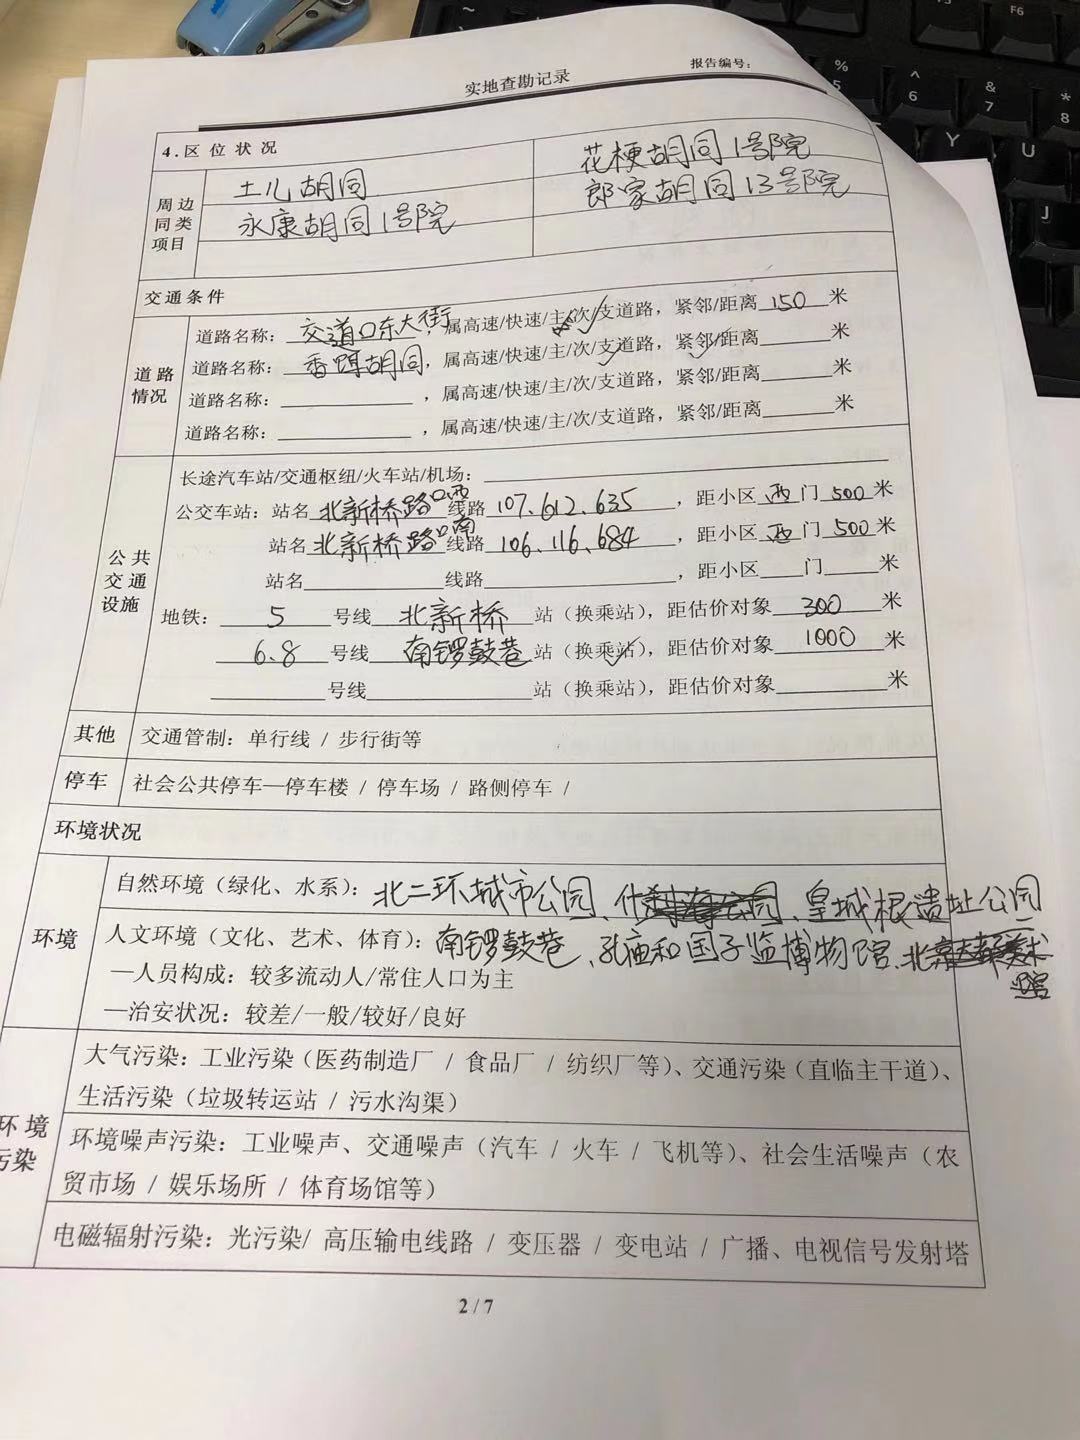 实地查勘记录
报告编号:
4.区位状况
周边同类项目
土儿胡同
花梗胡同1号院
永康胡同1号院
郎家胡同13号院
交通条件
道路情况
道路名称: 交道口东大街, 属高速/快速/主/次/支道路, 紧邻/距离 150 米
道路名称: 香饵胡同, 属高速/快速/主/次/支道路, 紧邻/距离 米
道路名称: , 属高速/快速/主/次/支道路, 紧邻/距离 米
道路名称: , 属高速/快速/主/次/支道路, 紧邻/距离 米
公共交通设施
长途汽车站/交通枢纽/火车站/机场:
公交车站: 站名 北新桥路口西 线路 107.612.635 , 距小区 西 门 500 米
站名 北新桥路口南 线路 106.116.684 , 距小区 西 门 500 米
站名 线路 , 距小区 门 米
地铁: 5 号线 北新桥 站(换乘站), 距估价对象 300 米
6.8 号线 南锣鼓巷 站(换乘站), 距估价对象 1000 米
号线 站(换乘站), 距估价对象 米
其他 交通管制: 单行线 / 步行街等
停车 社会公共停车—停车楼 / 停车场 / 路侧停车 /
环境状况
环境
自然环境(绿化、水系): 北二环城市公园、什刹海公园、皇城根遗址公园
人文环境(文化、艺术、体育): 南锣鼓巷、孔庙和国子监博物馆、北京
—人员构成: 较多流动人/常住人口为主
—治安状况: 较差/一般/较好/良好
环境污染
大气污染: 工业污染(医药制造厂 / 食品厂 / 纺织厂等)、交通污染(直临主干道)、
生活污染(垃圾转运站 / 污水沟渠)
环境噪声污染: 工业噪声、交通噪声(汽车 / 火车 / 飞机等)、社会生活噪声(农
贸市场 / 娱乐场所 / 体育场馆等)
电磁辐射污染: 光污染/ 高压输电线路 / 变压器 / 变电站 / 广播、电视信号发射塔
2 / 7
%
5
^
6
&
7
*
8
F6
Y
U
J